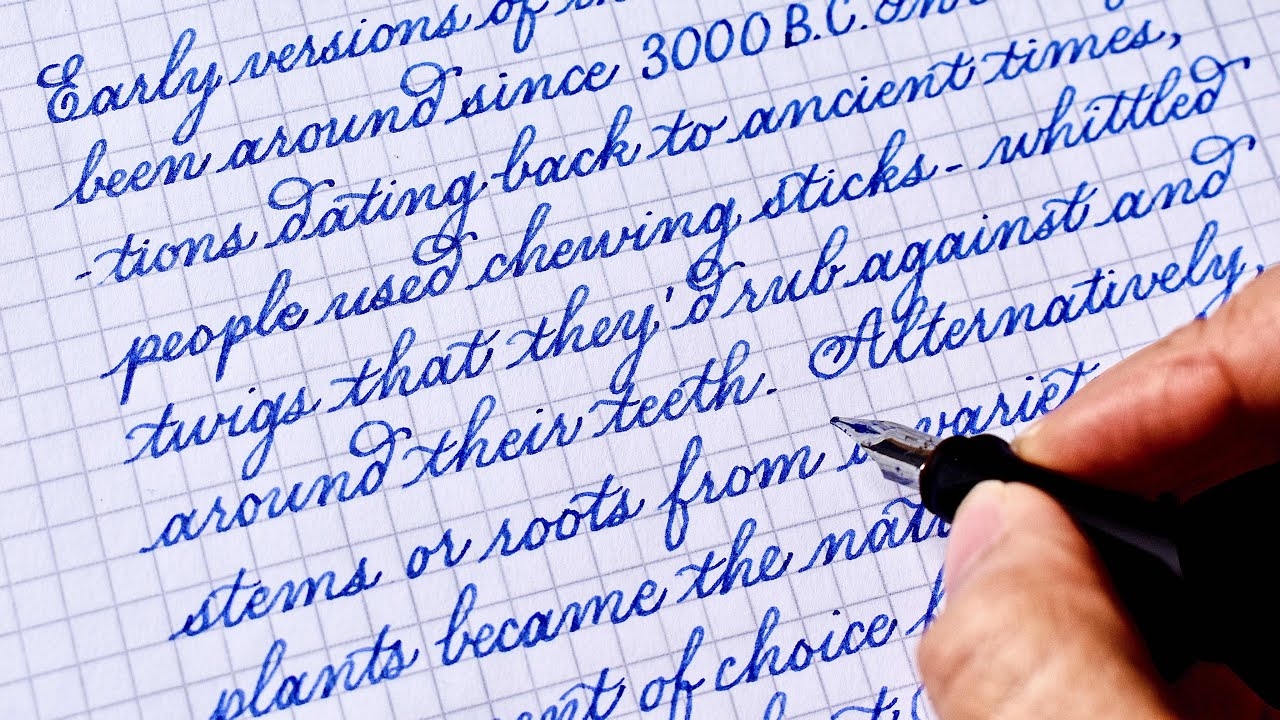 Early versions of
been around since 3000 B.C.
-tions dating back to ancient times,
people used chewing sticks - whittled
twigs that they'd rub against and
around their teeth. Alternatively,
stems or roots from a
plants became the
of choice